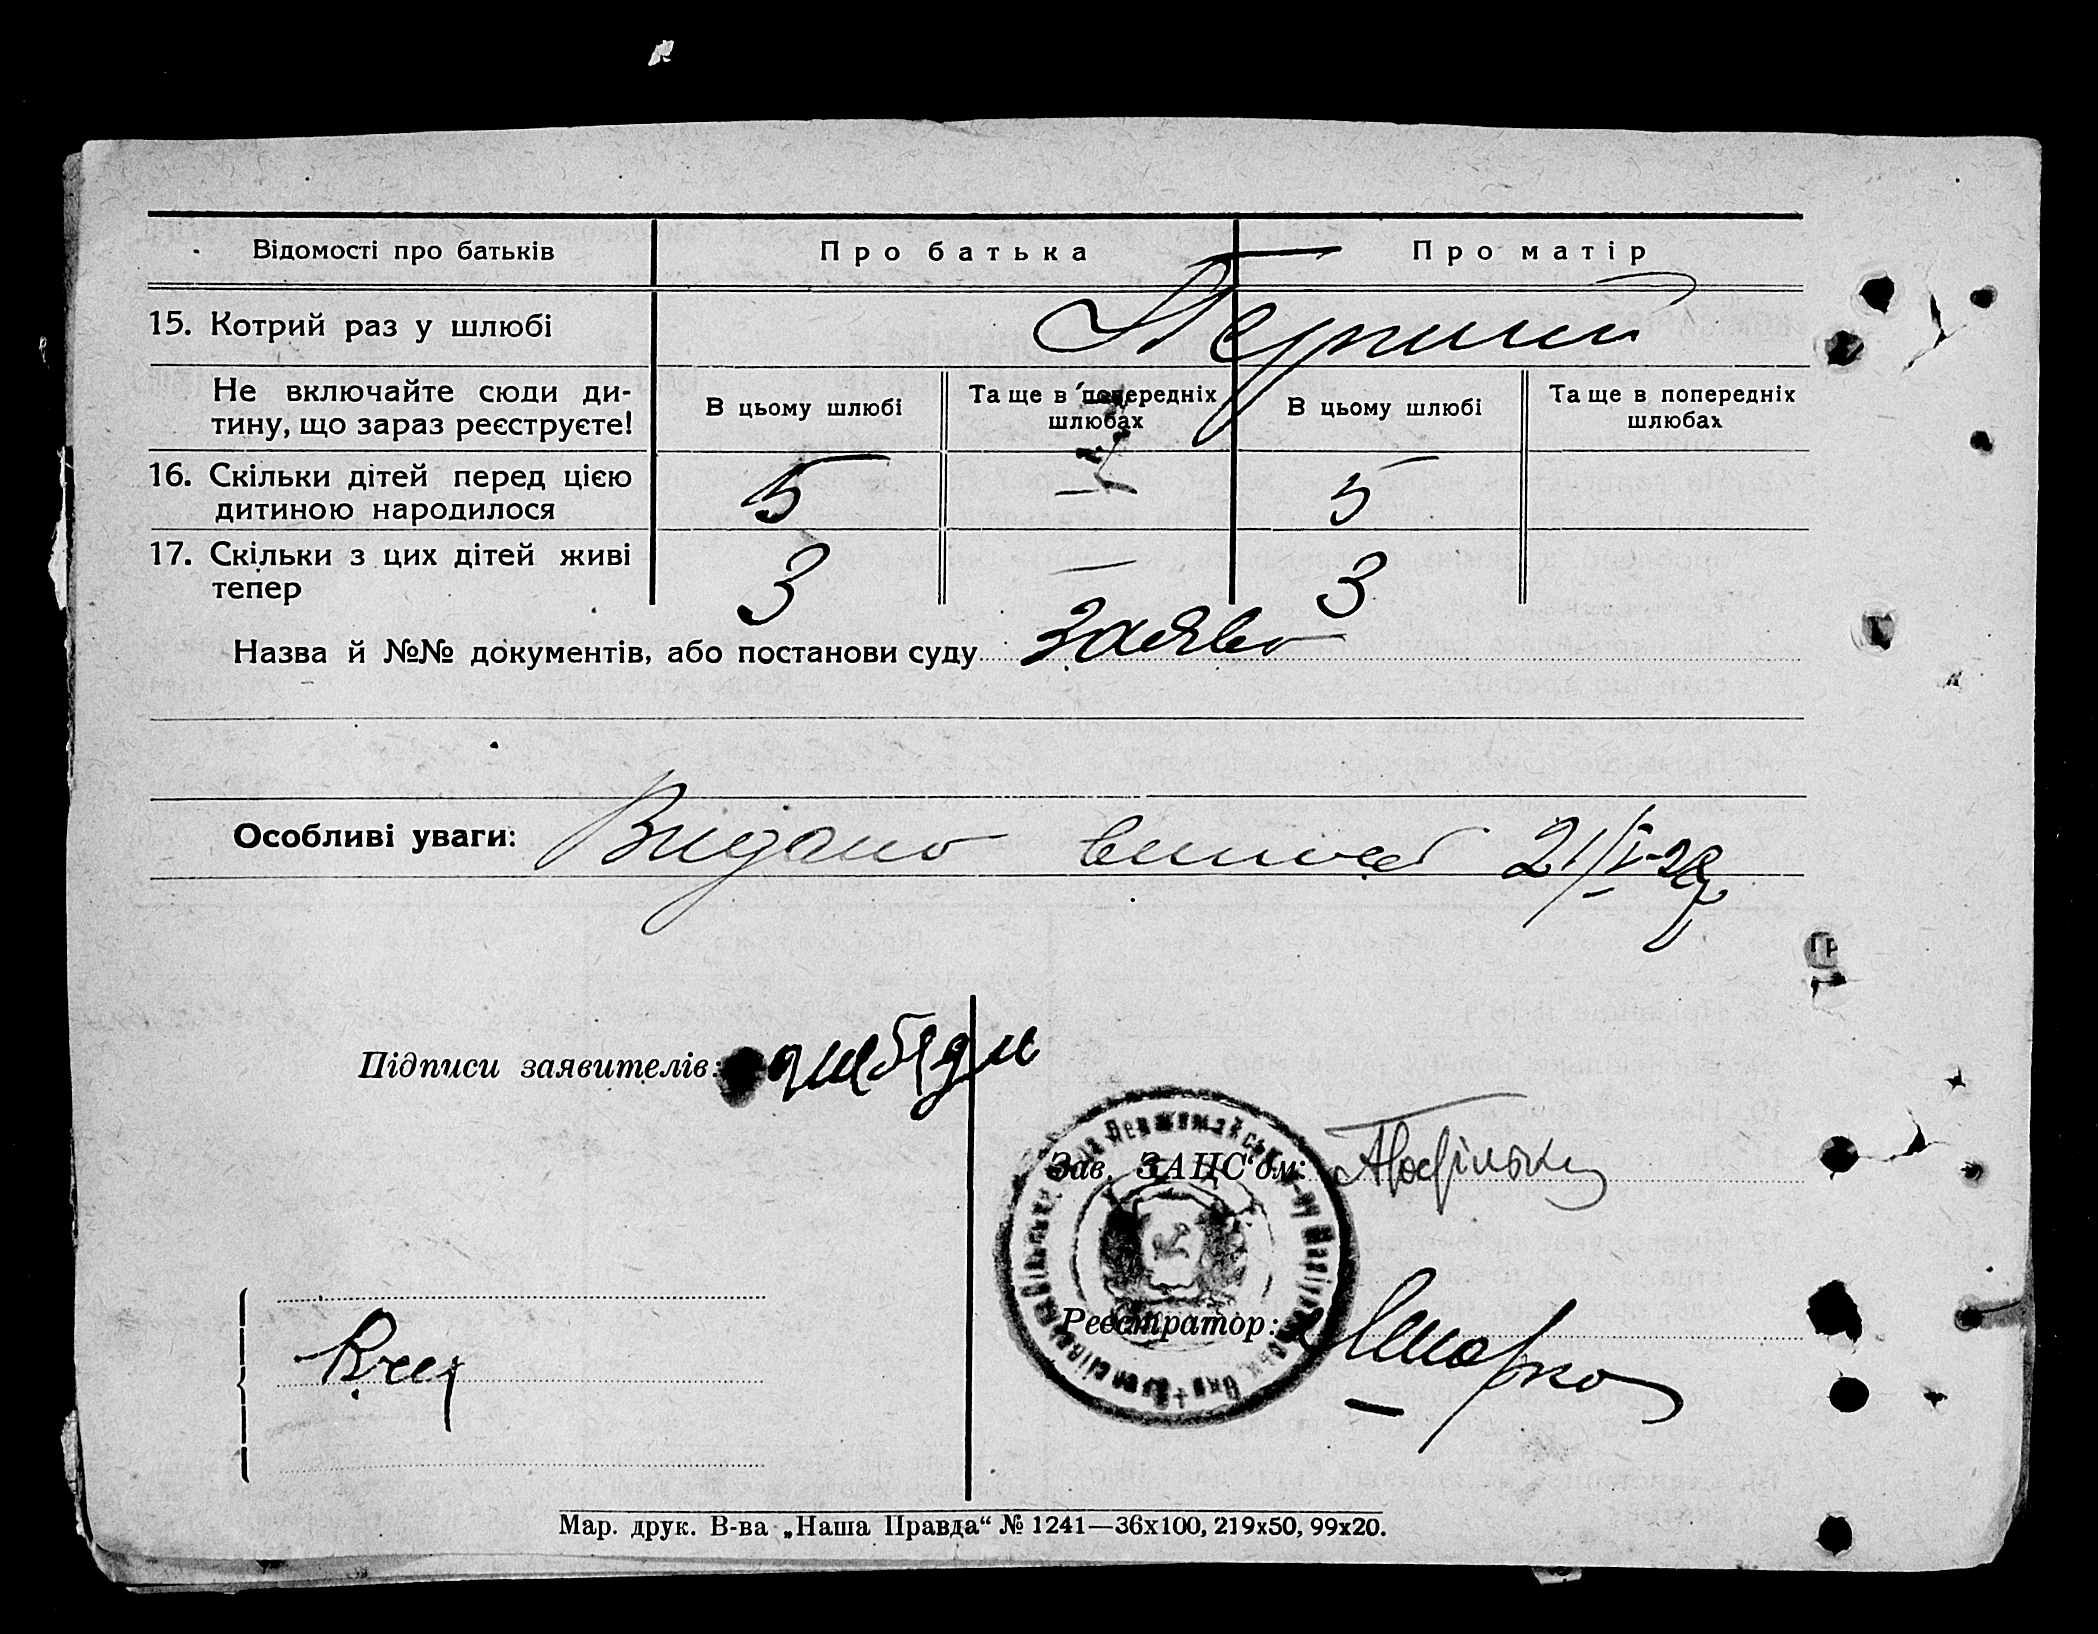 Відомості про батьків Про батька Про матір
15. Котрий раз у шлюбі Перший
Не включайте сюди ди-
тину, що зараз реєструєте!
В цьому шлюбі
Та ще в попередніх
шлюбах
В цьому шлюбі
Та ще в попередніх
шлюбах
16. Скільки дітей перед цією
дитиною народилося
5 — 5
17. Скільки з цих дітей живі
тепер
3 — 3
Назва й №№ документів, або постанови суду
Особливі уваги: Видано 21/
Підписи заявителів:
Зав. ЗАЦС'ом:
Реєстратор:
Мар. друк. В-ва „Наша Правда“ № 1241—36х100, 219х50, 99х20.